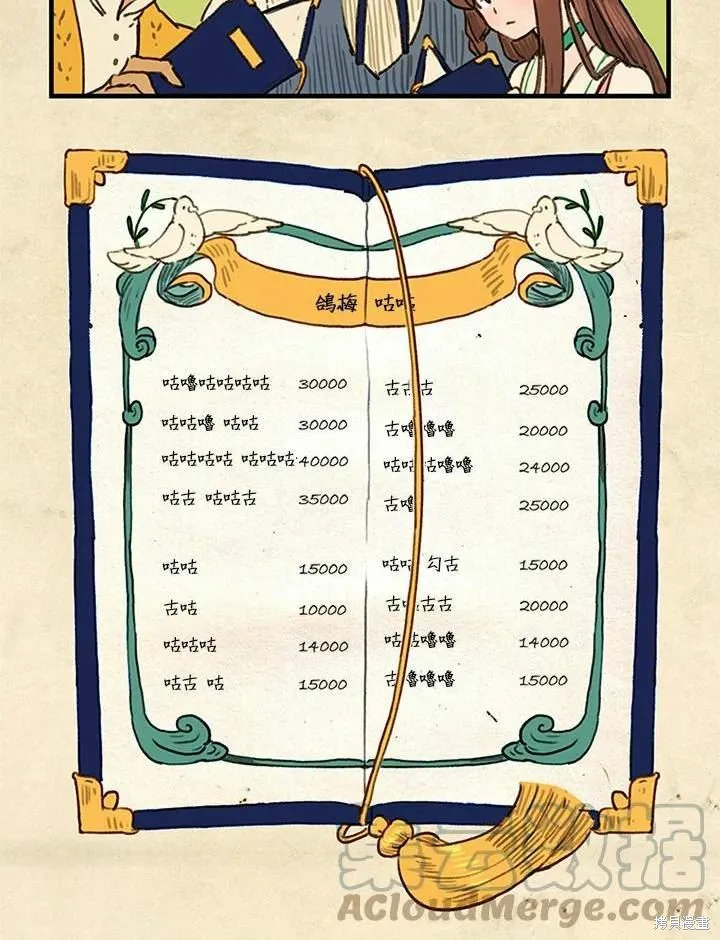 鴿梅 咕咕
咕嚕咕咕咕咕 30000
咕咕嚕 咕咕 30000
咕咕咕咕 咕咕咕 40000
咕古 咕咕古 35000
咕咕 15000
古咕 10000
咕咕咕 14000
咕古 咕 15000
古古古 25000
古嚕嚕嚕 20000
咕咕古嚕嚕 24000
古嚕 25000
咕咕 勾古 15000
古咕古古 20000
咕咕嚕嚕 14000
古嚕嚕嚕 15000
AcloudMerge.com
拷貝漫畫